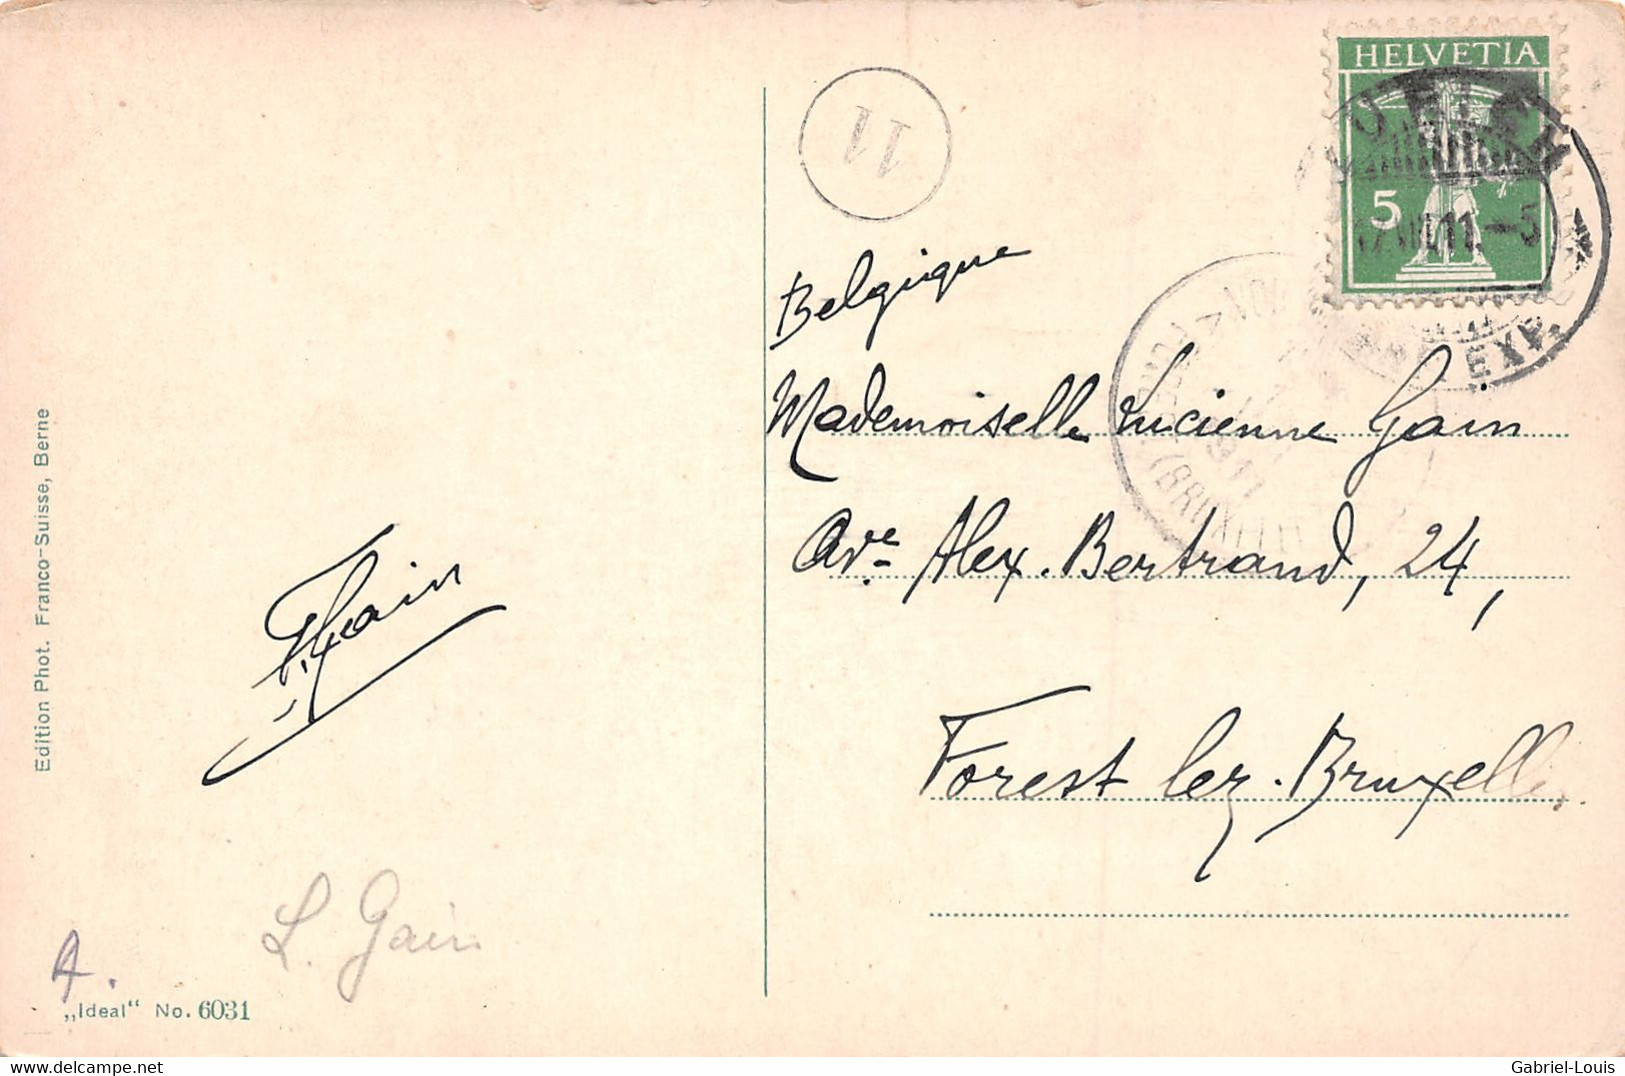 HELVETIA
5
11
Belgique
Mademoiselle Lucienne Gain
Ave Alex. Bertrand, 24,
Forest lez-Bruxelles
Edition Phot. Franco-Suisse, Berne
Gain
L. Gain
„Ideal“ No. 6031
11.—5
EXP.
(BRUXELLE
delcampe.net
Gabriel-Louis